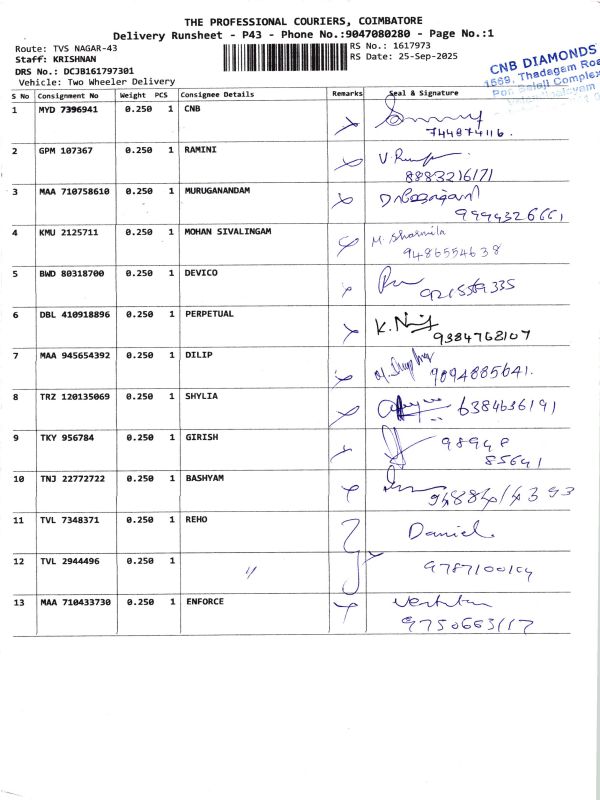 THE PROFESSIONAL COURIERS, COIMBATORE
Delivery Runsheet - P43 - Phone No.:9047080280 - Page No.:1
Route: TVS NAGAR-43 RS No.: 1617973
Staff: KRISHNAN RS Date: 25-Sep-2025
DRS No.: DCJB161797301
Vehicle: Two Wheeler Delivery
CNB DIAMONDS
1569, Thadagam Road
Complex
S No Consignment No Weight PCS Consignee Details Remarks Seal & Signature
1 MYD 7396941 0.250 1 CNB
744874116.
2 GPM 107367 0.250 1 RAMINI
8883216171
3 MAA 710758610 0.250 1 MURUGANANDAM
9994326661
4 KMU 2125711 0.250 1 MOHAN SIVALINGAM M. Sharmila
9486554638
5 BWD 80318700 0.250 1 DEVICO
6 DBL 410918896 0.250 1 PERPETUAL
9384768107
7 MAA 945654392 0.250 1 DILIP
9894885641.
8 TRZ 120135069 0.250 1 SHYLIA 6384636191
9 TKY 956784 0.250 1 GIRISH 98948
85641
10 TNJ 22772722 0.250 1 BASHYAM
9488414393
11 TVL 7348371 0.250 1 REHO Daniel
12 TVL 2944496 0.250 1 〃 9787100104
13 MAA 710433730 0.250 1 ENFORCE
9750663117